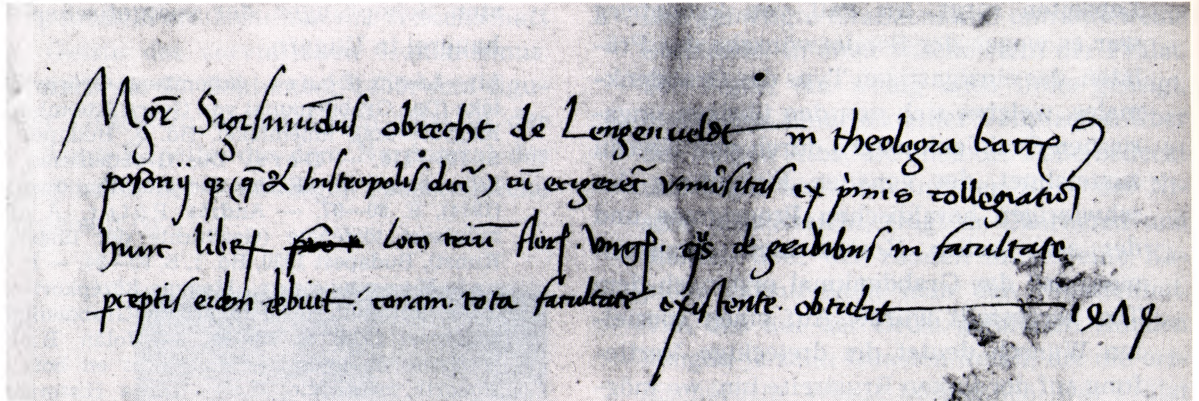 Mgr Sigismūdus obrecht de Lengenueldt in theologia bacc
posonij q (q̄ & Histropolis dicit) cū erigeret vniūsitas ex pͥmis collegiatio
hunc libr loco triū flor. vng. qͥs de gradibus in facultate
pceptis eidem debuit: coram tota facultate existente. obtulit 1474